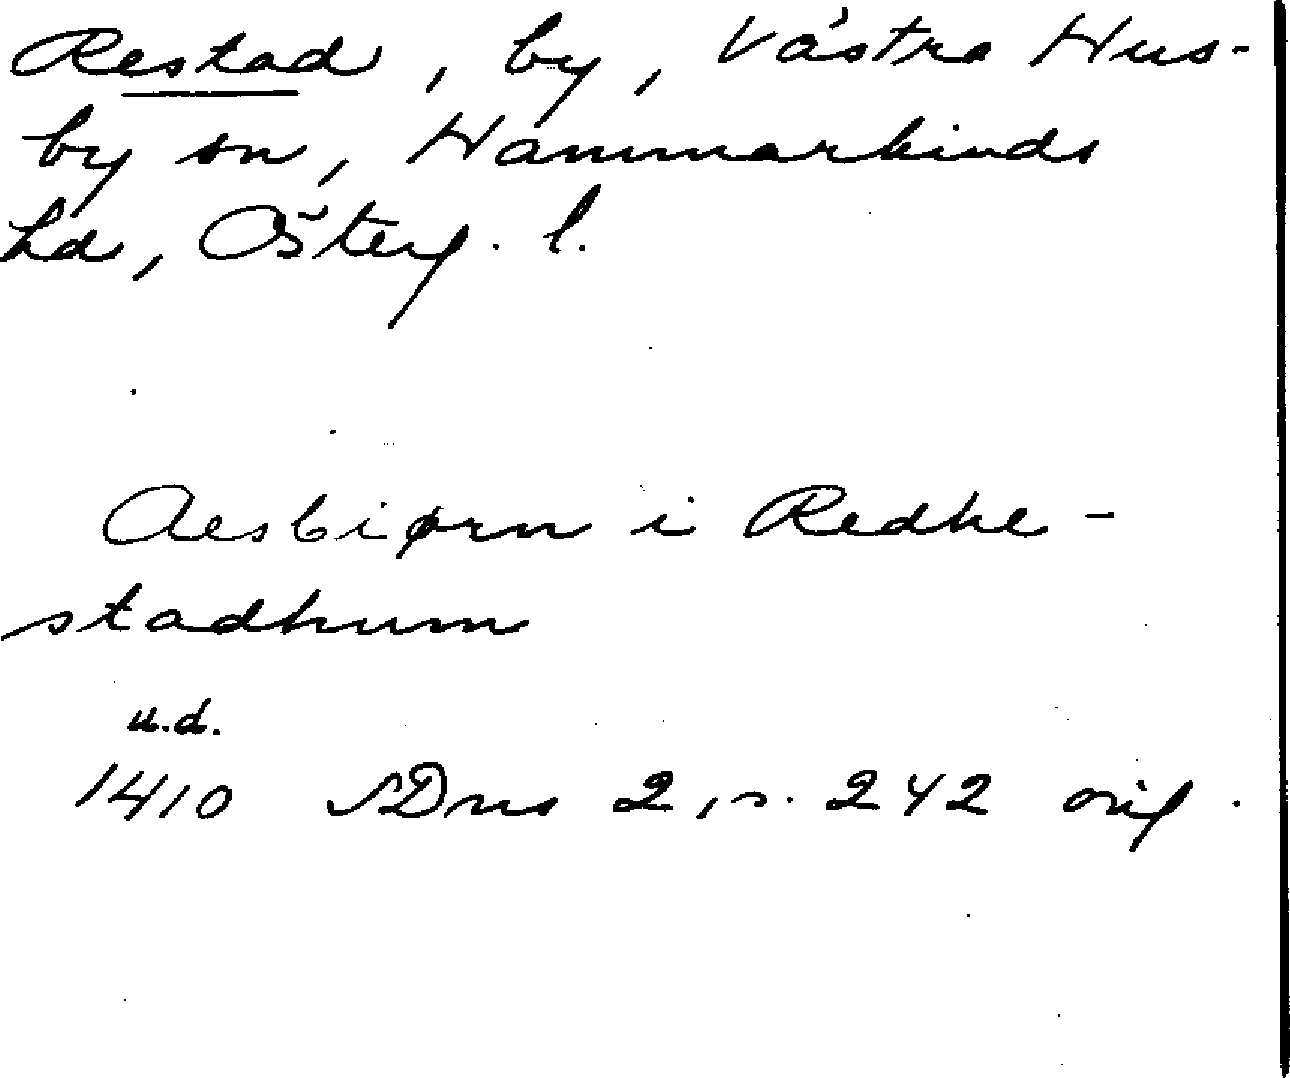 Restad, by, Västra Hus-
by sn, Hammarkinds
hd, Österg. l.
Aesbiørn i Redhe-
stadhum
u.d.
1410 SDns 2, s. 242 orig.